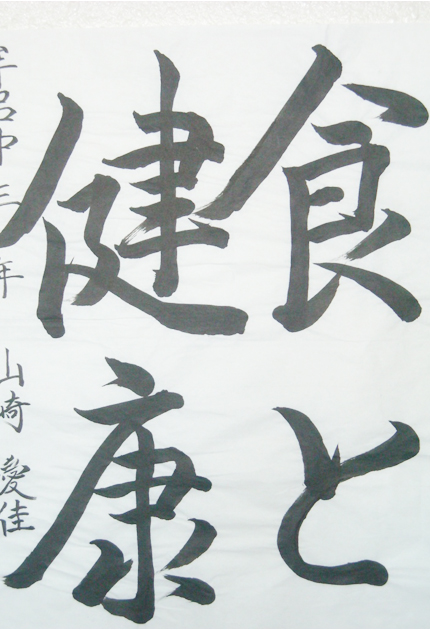 食と
健康
中三年 山崎 愛佳